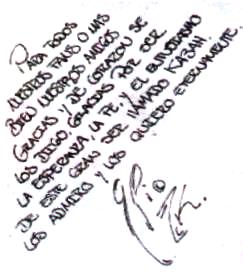 PARA TODOS
NUESTROS FANS O MAS
BIEN NUESTROS AMIGOS
GRACIAS Y DE CORAZON SE
LOS DIGO, GRACIAS POR SER
LA ESPERANZA, LA FE, Y EL ENTUSIASMO
DE ESTE GRAN SER LLAMADO KABAH.
LOS ADMIRO Y LOS QUIERO ETERNAMENTE.